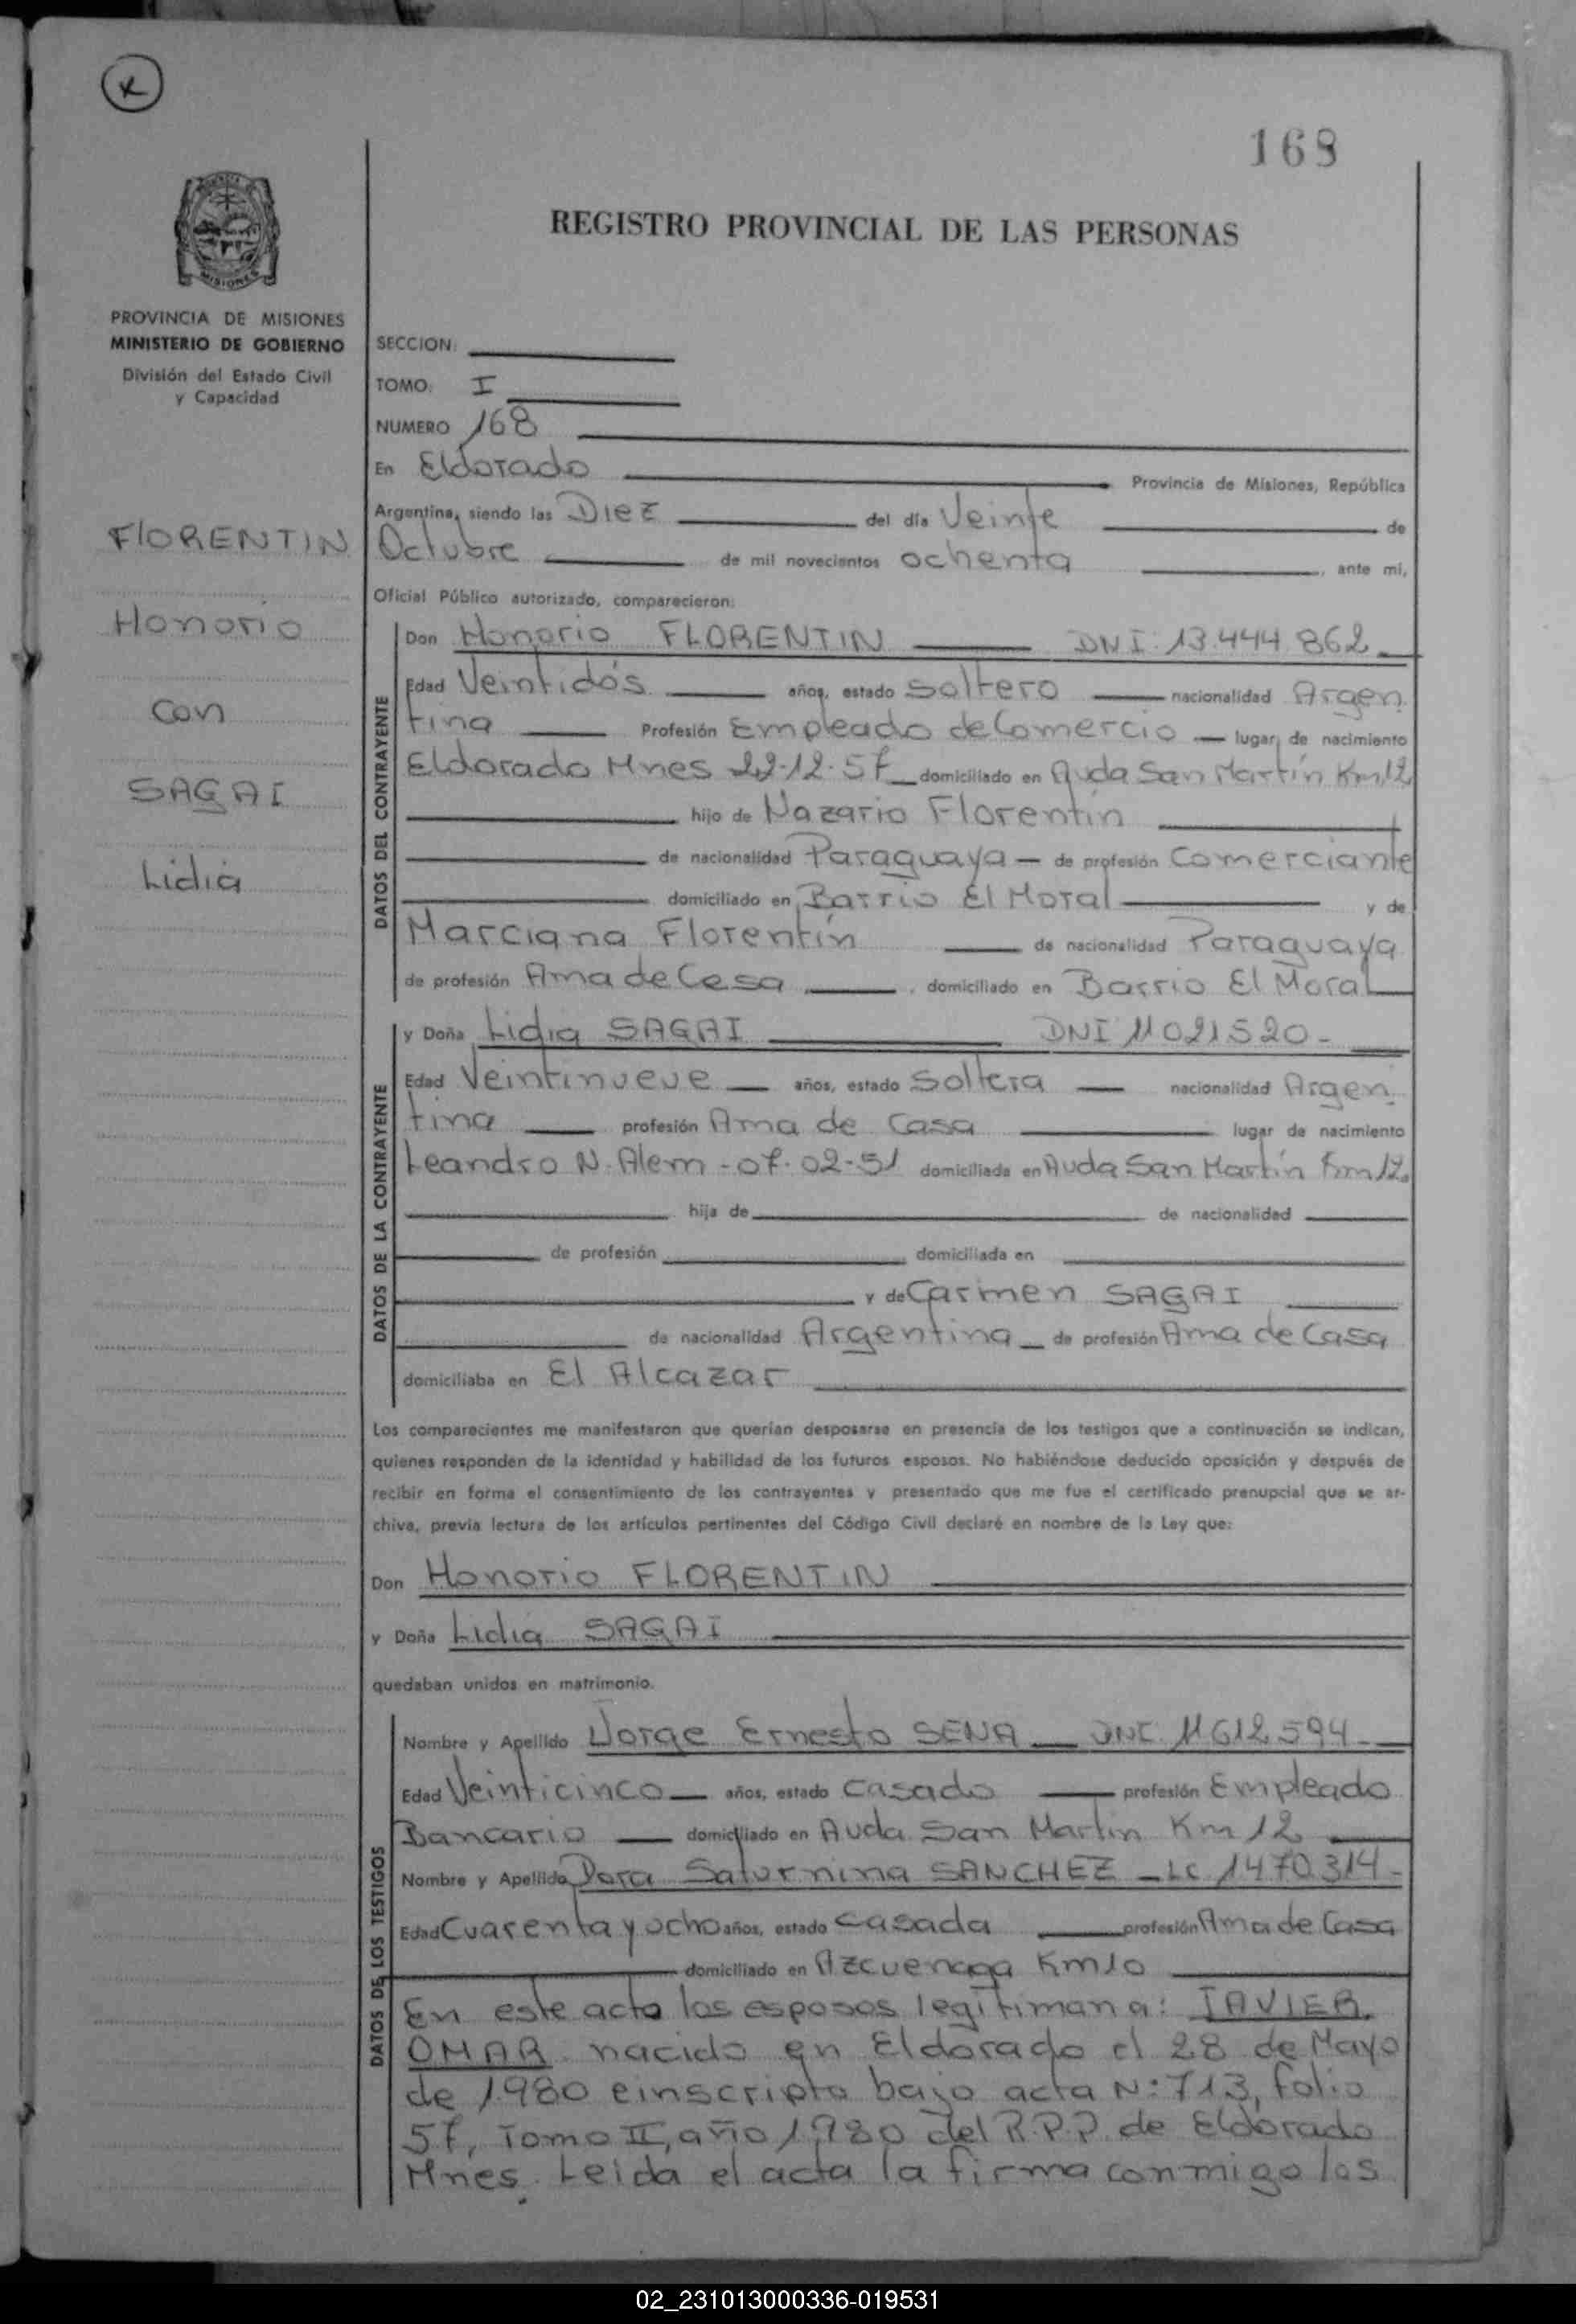 K
168
REGISTRO PROVINCIAL DE LAS PERSONAS
MISIONES
PROVINCIA DE MISIONES
MINISTERIO DE GOBIERNO
División del Estado Civil
y Capacidad
FlORENTIN
Honorio
con
SAGAI
Lidia
SECCION:
TOMO: I
NUMERO 168
En Eldorado Provincia de Misiones, República
Argentina, siendo las Diez del día Veinte de
Octubre de mil novecientos ochenta, ante mi,
Oficial Público autorizado, comparecieron:
DATOS DEL CONTRAYENTE
Don Honorio FLORENTIN DNI 13.444.862
Edad Veintidós años, estado soltero nacionalidad Argen
tina Profesión Empleado de Comercio lugar de nacimiento
Eldorado Mnes 22-12-57 domiciliado en Avda San Martín Km 12
hijo de Nazario Florentín
de nacionalidad Paraguaya de profesión Comerciante
domiciliado en Barrio El Moral y de
Marciana Florentín de nacionalidad Paraguaya
de profesión Ama de Casa, domiciliado en Barrio El Moral
DATOS DE LA CONTRAYENTE
y Doña Lidia SAGAI DNI 11021520-
Edad Veintinueve años, estado Soltera nacionalidad Argen
tina profesión Ama de Casa lugar de nacimiento
Leandro N. Alem - 07-02-51 domiciliada en Avda San Martín Km 12
hija de de nacionalidad
de profesión domiciliada en
y de Carmen SAGAI
de nacionalidad Argentina de profesión Ama de Casa
domiciliaba en El Alcazar
Los comparecientes me manifestaron que querían desposarse en presencia de los testigos que a continuación se indican,
quienes responden de la identidad y habilidad de los futuros esposos. No habiéndose deducido oposición y después de
recibir en forma el consentimiento de los contrayentes y presentado que me fue el certificado prenupcial que se ar-
chiva, previa lectura de los artículos pertinentes del Código Civil declaré en nombre de la Ley que:
Don Honorio FLORENTIN
y Doña Lidia SAGAI
quedaban unidos en matrimonio.
DATOS DE LOS TESTIGOS
Nombre y Apellido Jorge Ernesto SENA DNI. 11612.594
Edad Veinticinco años, estado casado profesión Empleado
Bancario domiciliado en Avda. San Martín Km 12
Nombre y Apellido Dora Saturnina SANCHEZ - LC 1.470.314-
Edad Cuarenta y ocho años, estado casada profesión Ama de Casa
domiciliado en Azcuenaga Km 10
En este acto los esposos legitiman a: JAVIER
OMAR nacido en Eldorado el 28 de Mayo
de 1980 e inscripto bajo acta N: 713, folio
57, Tomo II, año 1980 del R.P.P. de Eldorado
Mnes. Leida el acta la firma conmigo los
02_231013000336-019531